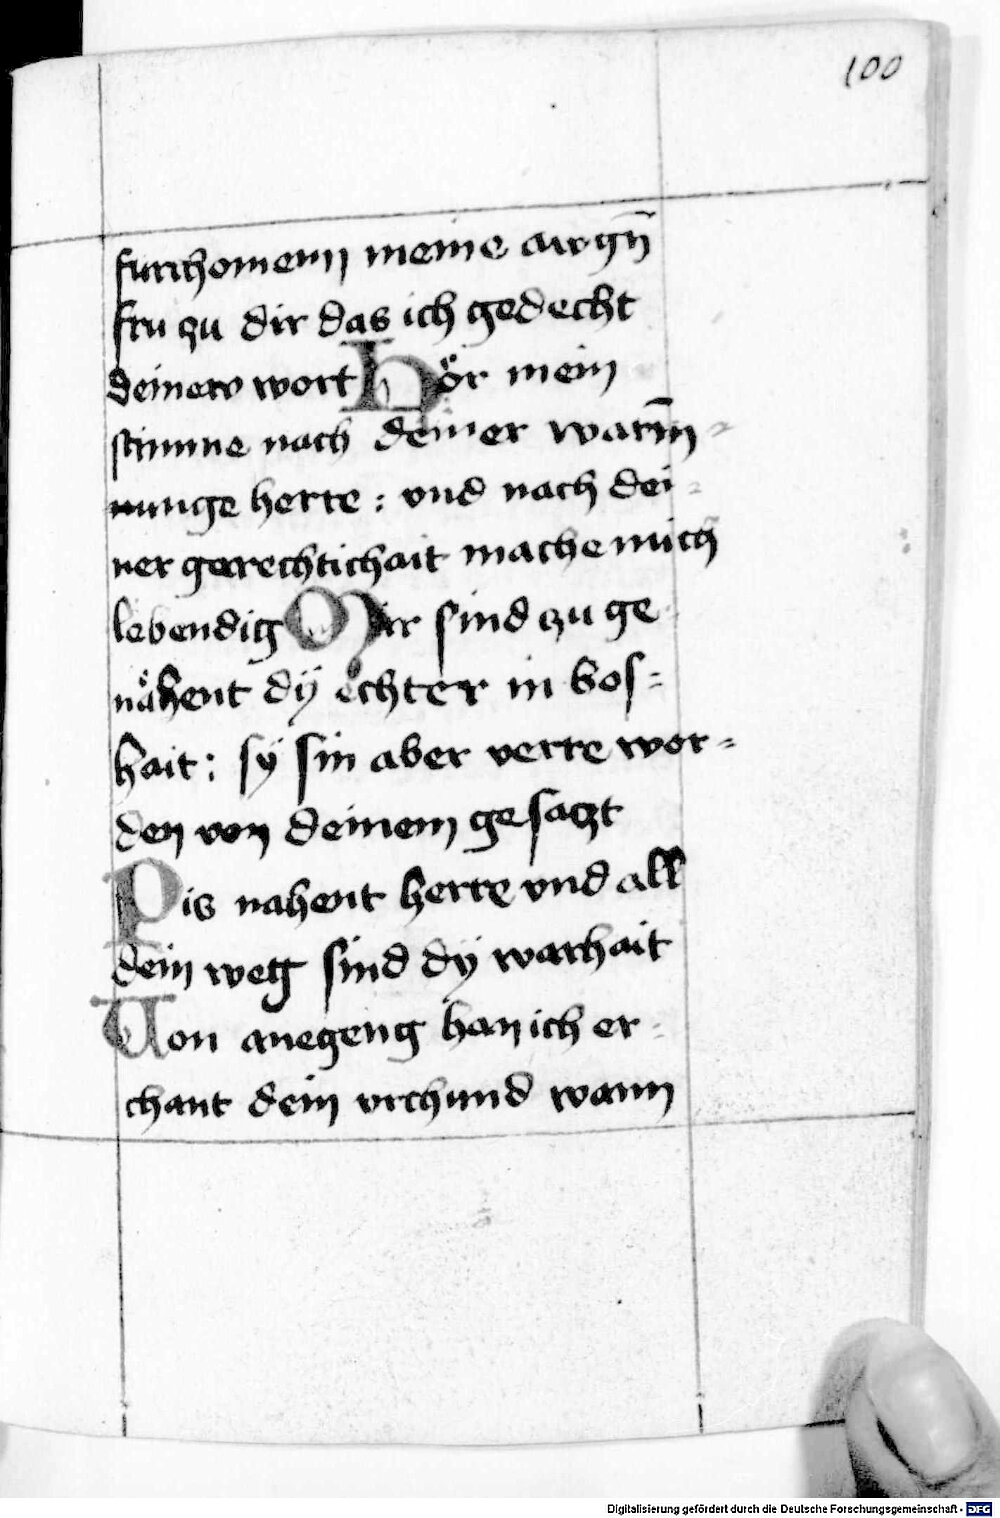 100
furchomenn meine awgn̄
fru zu dir das ich gedecht
deinew wort Hoͤr mein
stimme nach deiner warm̄=
nunge herre : vnd nach dei=
ner gerechtichait mache mich
lebendig Mir sind zu ge
naͤhent dÿ ͤechter in bos=
hait : sÿ sin aber verre wor=
den von deinem gesaczt
Pis nahent herre vnd all
dein weg sind dÿ warhait
Uon anegeng han ich er=
chant dein vrchund wann
Digitalisierung gefördert durch die Deutsche Forschungsgemeinschaft - DFG